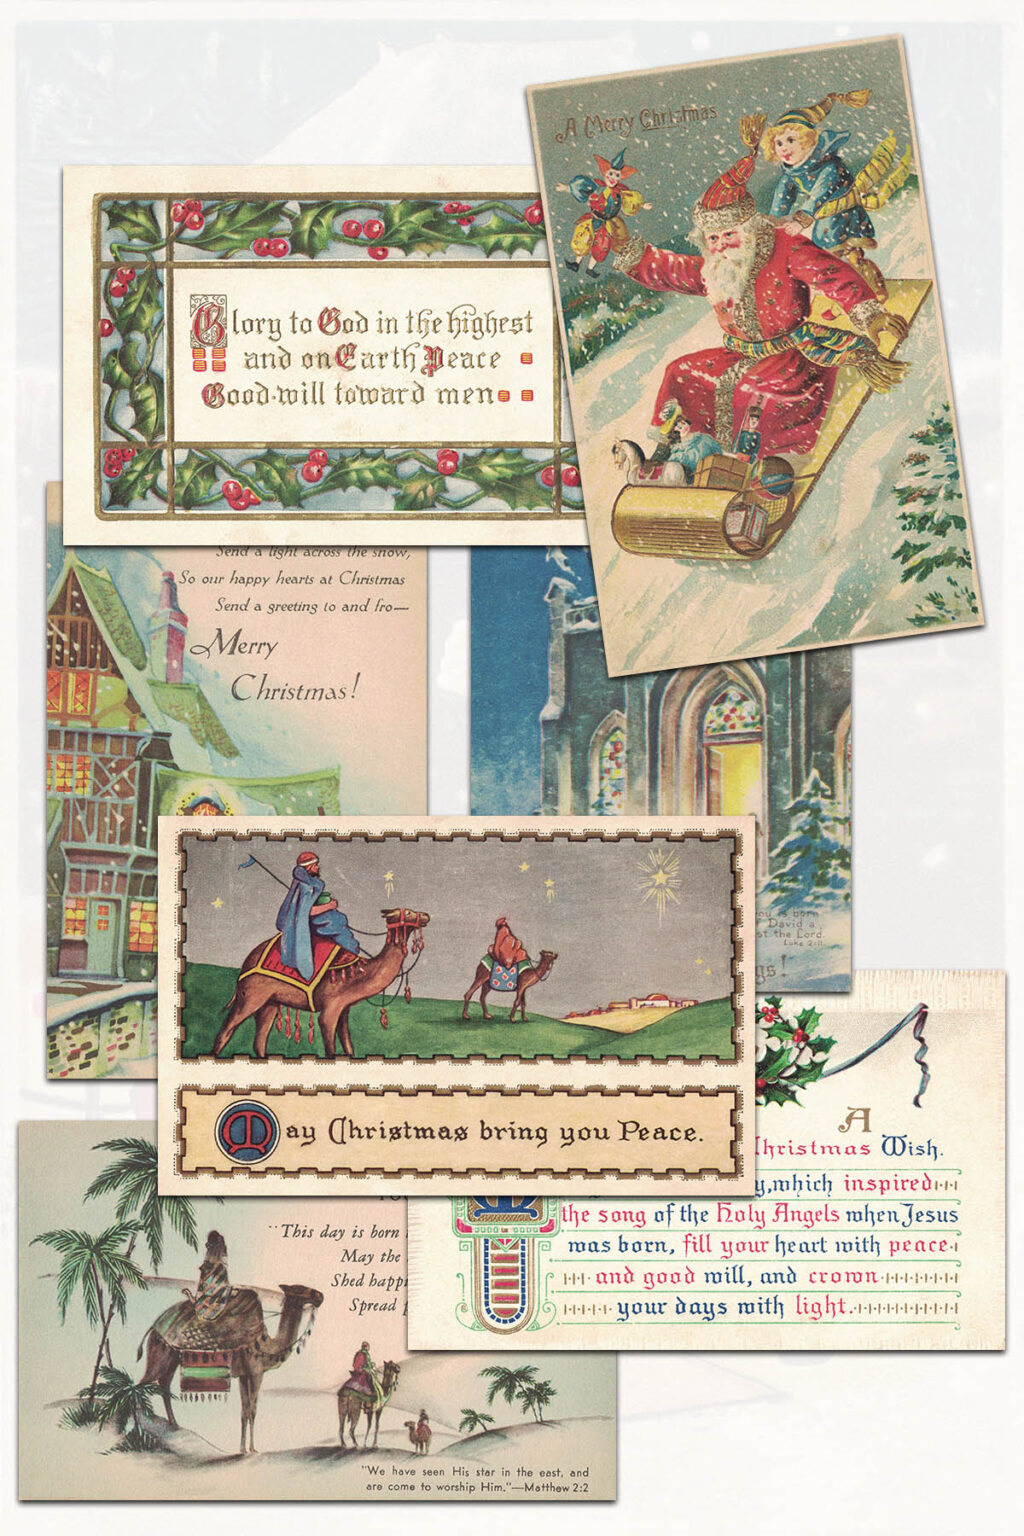 A Merry Christmas
Glory to God in the highest
and on Earth Peace
Good-will toward men
Send a light across the snow,
So our happy hearts at Christmas
Send a greeting to and fro—
Merry
Christmas!
you is born
David a
st the Lord.
Luke 2:11.
gs!
May Christmas bring you Peace.
A
Christmas Wish.
y, which inspired
the song of the Holy Angels when Jesus
was born, fill your heart with peace
and good will, and crown
your days with light.
"This day is born
May the
Shed happi
Spread
"We have seen His star in the east, and
are come to worship Him."—Matthew 2:2